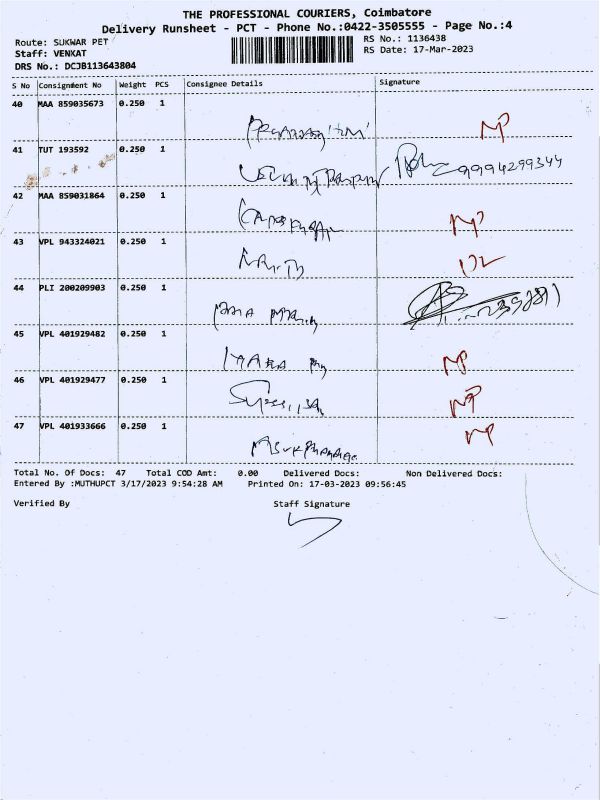 THE PROFESSIONAL COURIERS, Coimbatore
Delivery Runsheet - PCT - Phone No.:0422-3505555 - Page No.:4
Route: SUKWAR PET
RS No.: 1136438
Staff: VENKAT
RS Date: 17-Mar-2023
DRS No.: DCJB113643804
S No Consignment No Weight PCS Consignee Details Signature
40 MAA 859035673 0.250 1
NP
41 TUT 193592 0.250 1
9994299344
42 MAA 859031864 0.250 1
NP
43 VPL 943324021 0.250 1
DL
44 PLI 200209903 0.250 1
45 VPL 401929482 0.250 1
NP
46 VPL 401929477 0.250 1
NP
47 VPL 401933666 0.250 1
NP
Total No. Of Docs: 47 Total COD Amt: 0.00 Delivered Docs: Non Delivered Docs:
Entered By :MUTHUPCT 3/17/2023 9:54:28 AM Printed On: 17-03-2023 09:56:45
Verified By Staff Signature